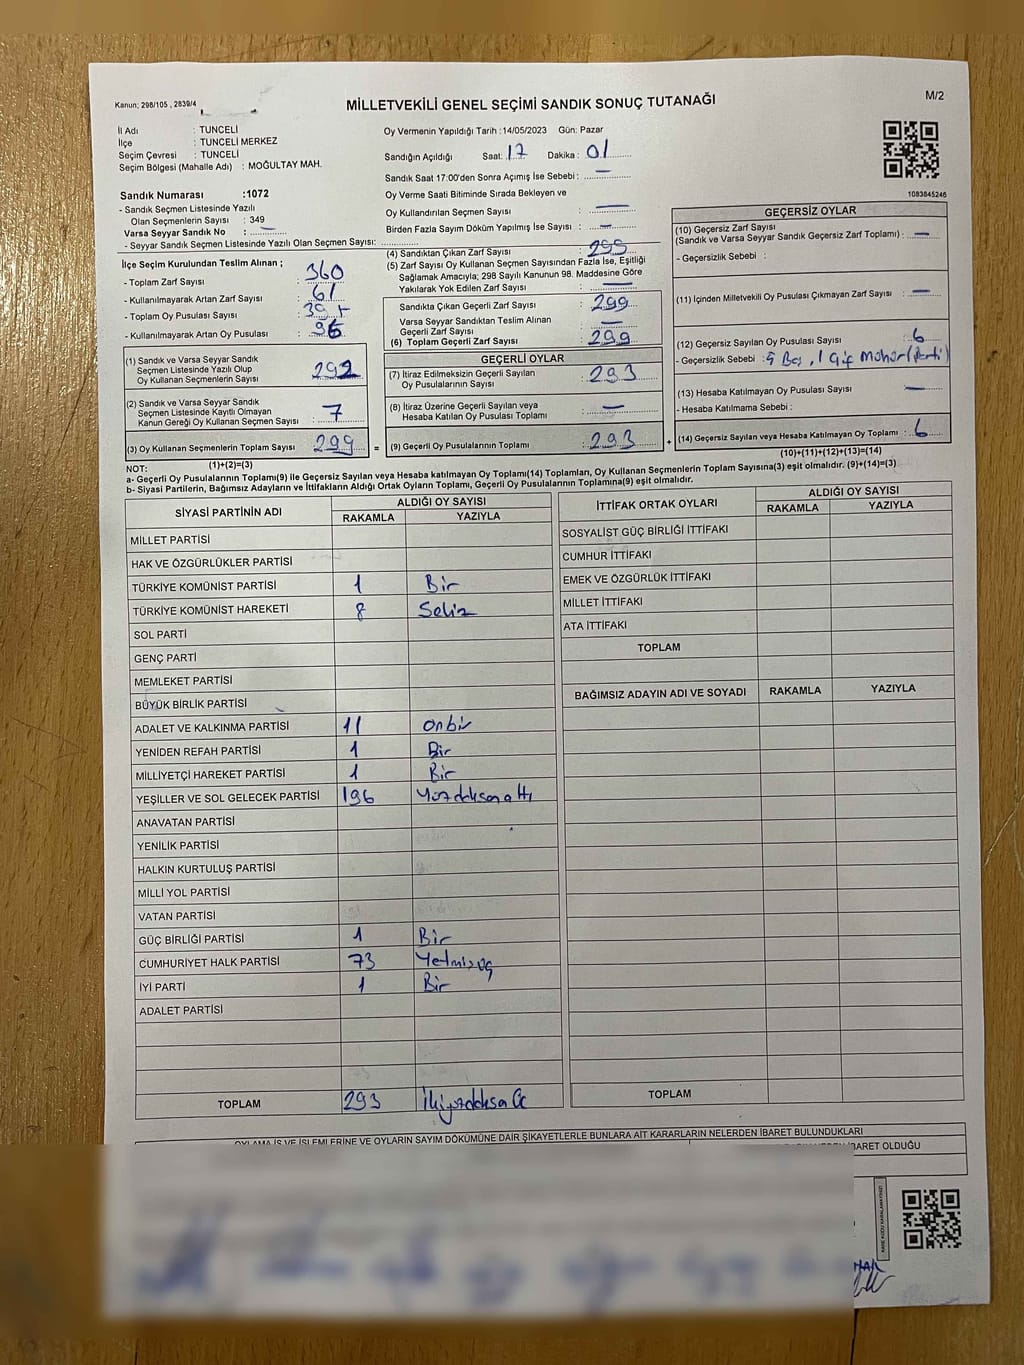 Kanun; 298/105 , 2839/4
MİLLETVEKİLİ GENEL SEÇİMİ SANDIK SONUÇ TUTANAĞI
M/2
İl Adı : TUNCELİ
İlçe : TUNCELİ MERKEZ
Seçim Çevresi : TUNCELİ
Seçim Bölgesi (Mahalle Adı) : MOĞULTAY MAH.
Sandık Numarası :1072
- Sandık Seçmen Listesinde Yazılı
Olan Seçmenlerin Sayısı : 349
Varsa Seyyar Sandık No : —
- Seyyar Sandık Seçmen Listesinde Yazılı Olan Seçmen Sayısı:
Oy Vermenin Yapıldığı Tarih :14/05/2023 Gün: Pazar
Sandığın Açıldığı Saat: 17 Dakika : 01
Sandık Saat 17:00'den Sonra Açımış İse Sebebi : —
Oy Verme Saati Bitiminde Sırada Bekleyen ve
Oy Kullandırılan Seçmen Sayısı : —
Birden Fazla Sayım Döküm Yapılmış İse Sayısı : —
1083845246
İlçe Seçim Kurulundan Teslim Alınan ;
- Toplam Zarf Sayısı : 360
- Kullanılmayarak Artan Zarf Sayısı : 61
- Toplam Oy Pusulası Sayısı :
- Kullanılmayarak Artan Oy Pusulası : 96
(1) Sandık ve Varsa Seyyar Sandık
Seçmen Listesinde Yazılı Olup
Oy Kullanan Seçmenlerin Sayısı : 292
(2) Sandık ve Varsa Seyyar Sandık
Seçmen Listesinde Kayıtlı Olmayan
Kanun Gereği Oy Kullanan Seçmen Sayısı : 7
(3) Oy Kullanan Seçmenlerin Toplam Sayısı : 299 =
(1)+(2)=(3)
(4) Sandıktan Çıkan Zarf Sayısı : 299
(5) Zarf Sayısı Oy Kullanan Seçmen Sayısından Fazla İse, Eşitliği
Sağlamak Amacıyla; 298 Sayılı Kanunun 98. Maddesine Göre
Yakılarak Yok Edilen Zarf Sayısı : —
Sandıkta Çıkan Geçerli Zarf Sayısı : 299
Varsa Seyyar Sandıktan Teslim Alınan
Geçerli Zarf Sayısı : —
(6) Toplam Geçerli Zarf Sayısı : 299
GEÇERLİ OYLAR
(7) İtiraz Edilmeksizin Geçerli Sayılan
Oy Pusulalarının Sayısı : 293
(8) İtiraz Üzerine Geçerli Sayılan veya
Hesaba Katılan Oy Pusulası Toplamı : —
(9) Geçerli Oy Pusulalarının Toplamı : 293 +
GEÇERSİZ OYLAR
(10) Geçersiz Zarf Sayısı
(Sandık ve Varsa Seyyar Sandık Geçersiz Zarf Toplamı) : —
- Geçersizlik Sebebi :
(11) İçinden Milletvekili Oy Pusulası Çıkmayan Zarf Sayısı : —
(12) Geçersiz Sayılan Oy Pusulası Sayısı : 6
- Geçersizlik Sebebi : 5 Boş, 1 Çif Mühür (Parti)
(13) Hesaba Katılmayan Oy Pusulası Sayısı : —
- Hesaba Katılmama Sebebi :
(14) Geçersiz Sayılan veya Hesaba Katılmayan Oy Toplamı : 6
(10)+(11)+(12)+(13)=(14)
NOT:
a- Geçerli Oy Pusulalarının Toplamı(9) ile Geçersiz Sayılan veya Hesaba katılmayan Oy Toplamı(14) Toplamları, Oy Kullanan Seçmenlerin Toplam Sayısına(3) eşit olmalıdır. (9)+(14)=(3)
b- Siyasi Partilerin, Bağımsız Adayların ve İttifakların Aldığı Ortak Oyların Toplamı, Geçerli Oy Pusulalarının Toplamına(9) eşit olmalıdır.
SİYASİ PARTİNİN ADI
ALDIĞI OY SAYISI
RAKAMLA YAZIYLA
MİLLET PARTİSİ
HAK VE ÖZGÜRLÜKLER PARTİSİ
TÜRKİYE KOMÜNİST PARTİSİ 1 Bir
TÜRKİYE KOMÜNİST HAREKETİ 8 Sekiz
SOL PARTİ
GENÇ PARTİ
MEMLEKET PARTİSİ
BÜYÜK BİRLİK PARTİSİ
ADALET VE KALKINMA PARTİSİ 11 Onbir
YENİDEN REFAH PARTİSİ 1 Bir
MİLLİYETÇİ HAREKET PARTİSİ 1 Bir
YEŞİLLER VE SOL GELECEK PARTİSİ 196 Yüzdoksanaltı
ANAVATAN PARTİSİ
YENİLİK PARTİSİ
HALKIN KURTULUŞ PARTİSİ
MİLLİ YOL PARTİSİ
VATAN PARTİSİ
GÜÇ BİRLİĞİ PARTİSİ 1 Bir
CUMHURİYET HALK PARTİSİ 73 Yetmişüç
İYİ PARTİ 1 Bir
ADALET PARTİSİ
TOPLAM 293 İkiyüzdoksan Üç
İTTİFAK ORTAK OYLARI
ALDIĞI OY SAYISI
RAKAMLA YAZIYLA
SOSYALİST GÜÇ BİRLİĞİ İTTİFAKI
CUMHUR İTTİFAKI
EMEK VE ÖZGÜRLÜK İTTİFAKI
MİLLET İTTİFAKI
ATA İTTİFAKI
TOPLAM
BAĞIMSIZ ADAYIN ADI VE SOYADI RAKAMLA YAZIYLA
TOPLAM
OYLAMA İŞ VE İŞLEMLERİNE VE OYLARIN SAYIM DÖKÜMÜNE DAİR ŞİKAYETLERLE BUNLARA AİT KARARLARIN NELERDEN İBARET BULUNDUKLARI
İBARET OLDUĞU
KARE KODU KARALAMAYINIZ!